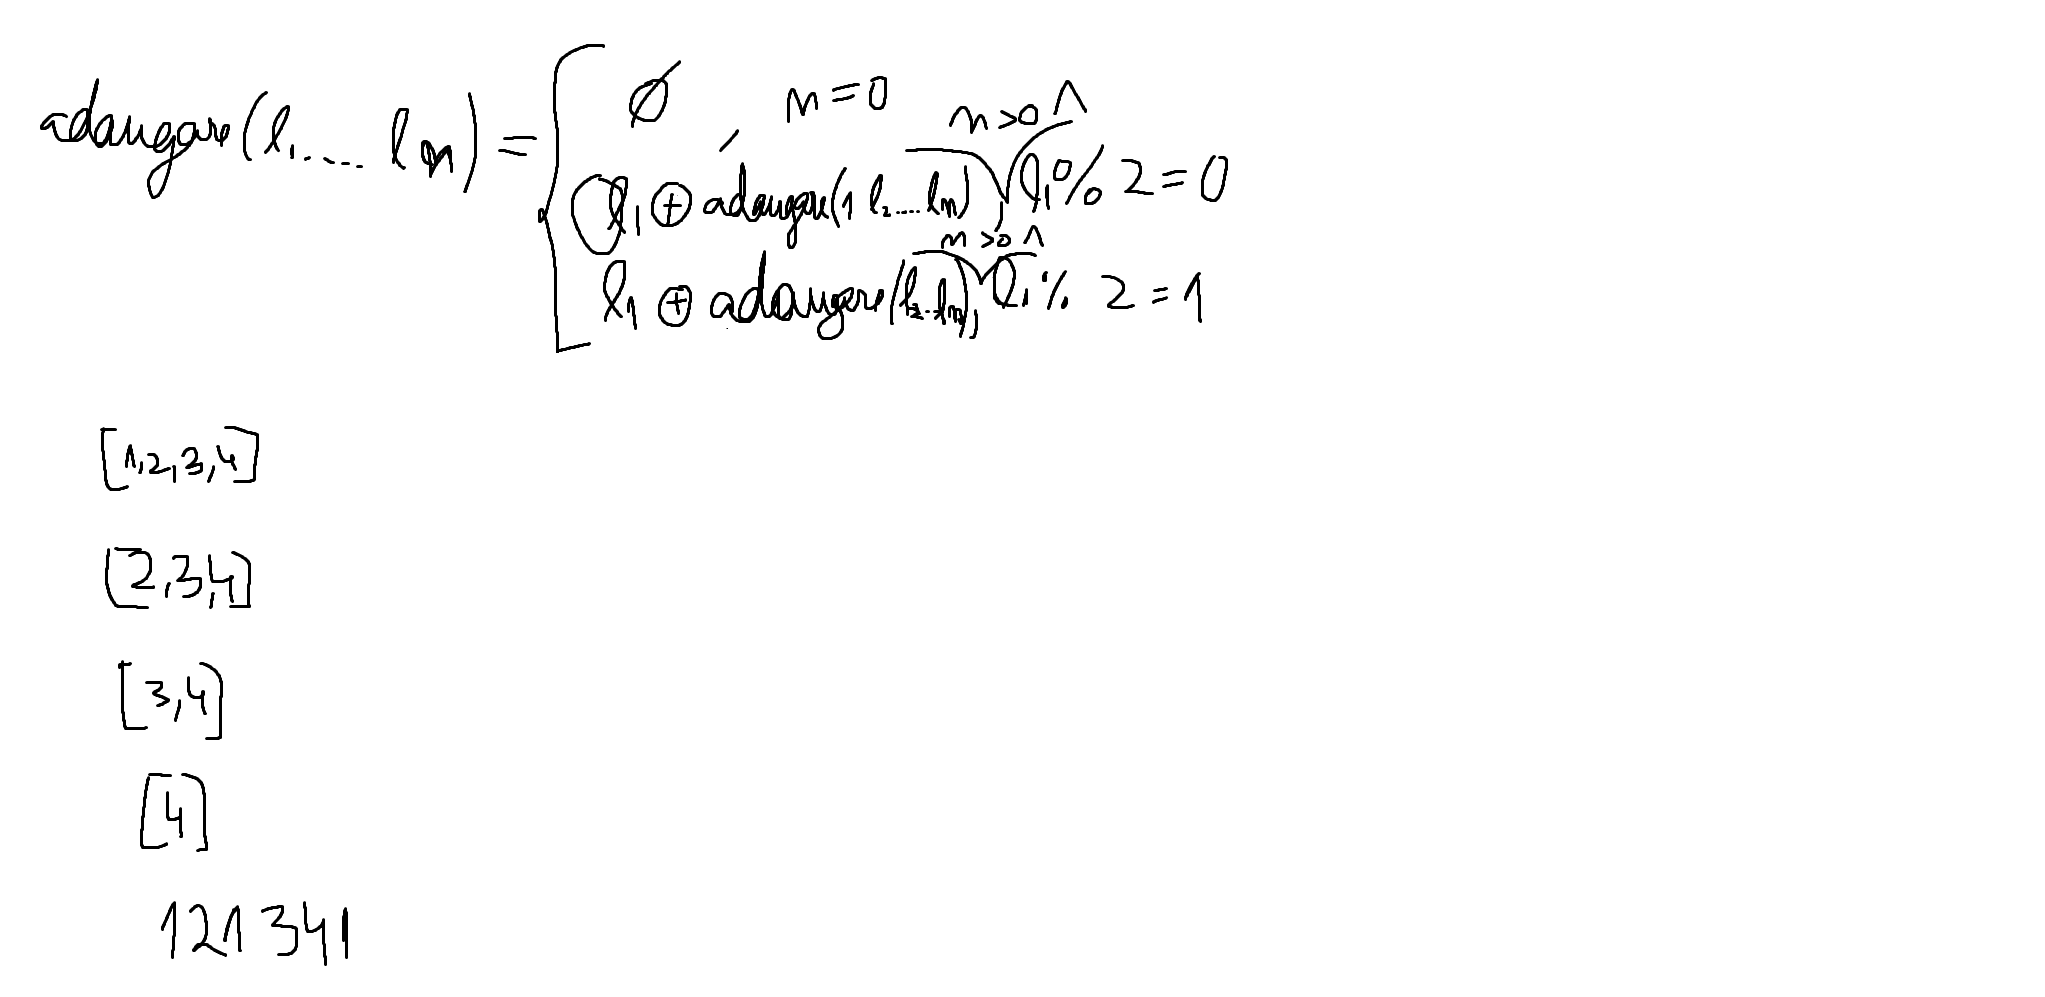 adaugare(l₁.... lₙ) = { ∅ , n=0
l₁ ⊕ adaugare(1 l₂....lₙ), n>0 ∧ l₁% 2=0
l₁ ⊕ adaugare(l₂..lₙ), n>0 ∧ l₁% 2=1
[1,2,3,4]
[2,3,4]
[3,4]
[4]
121341